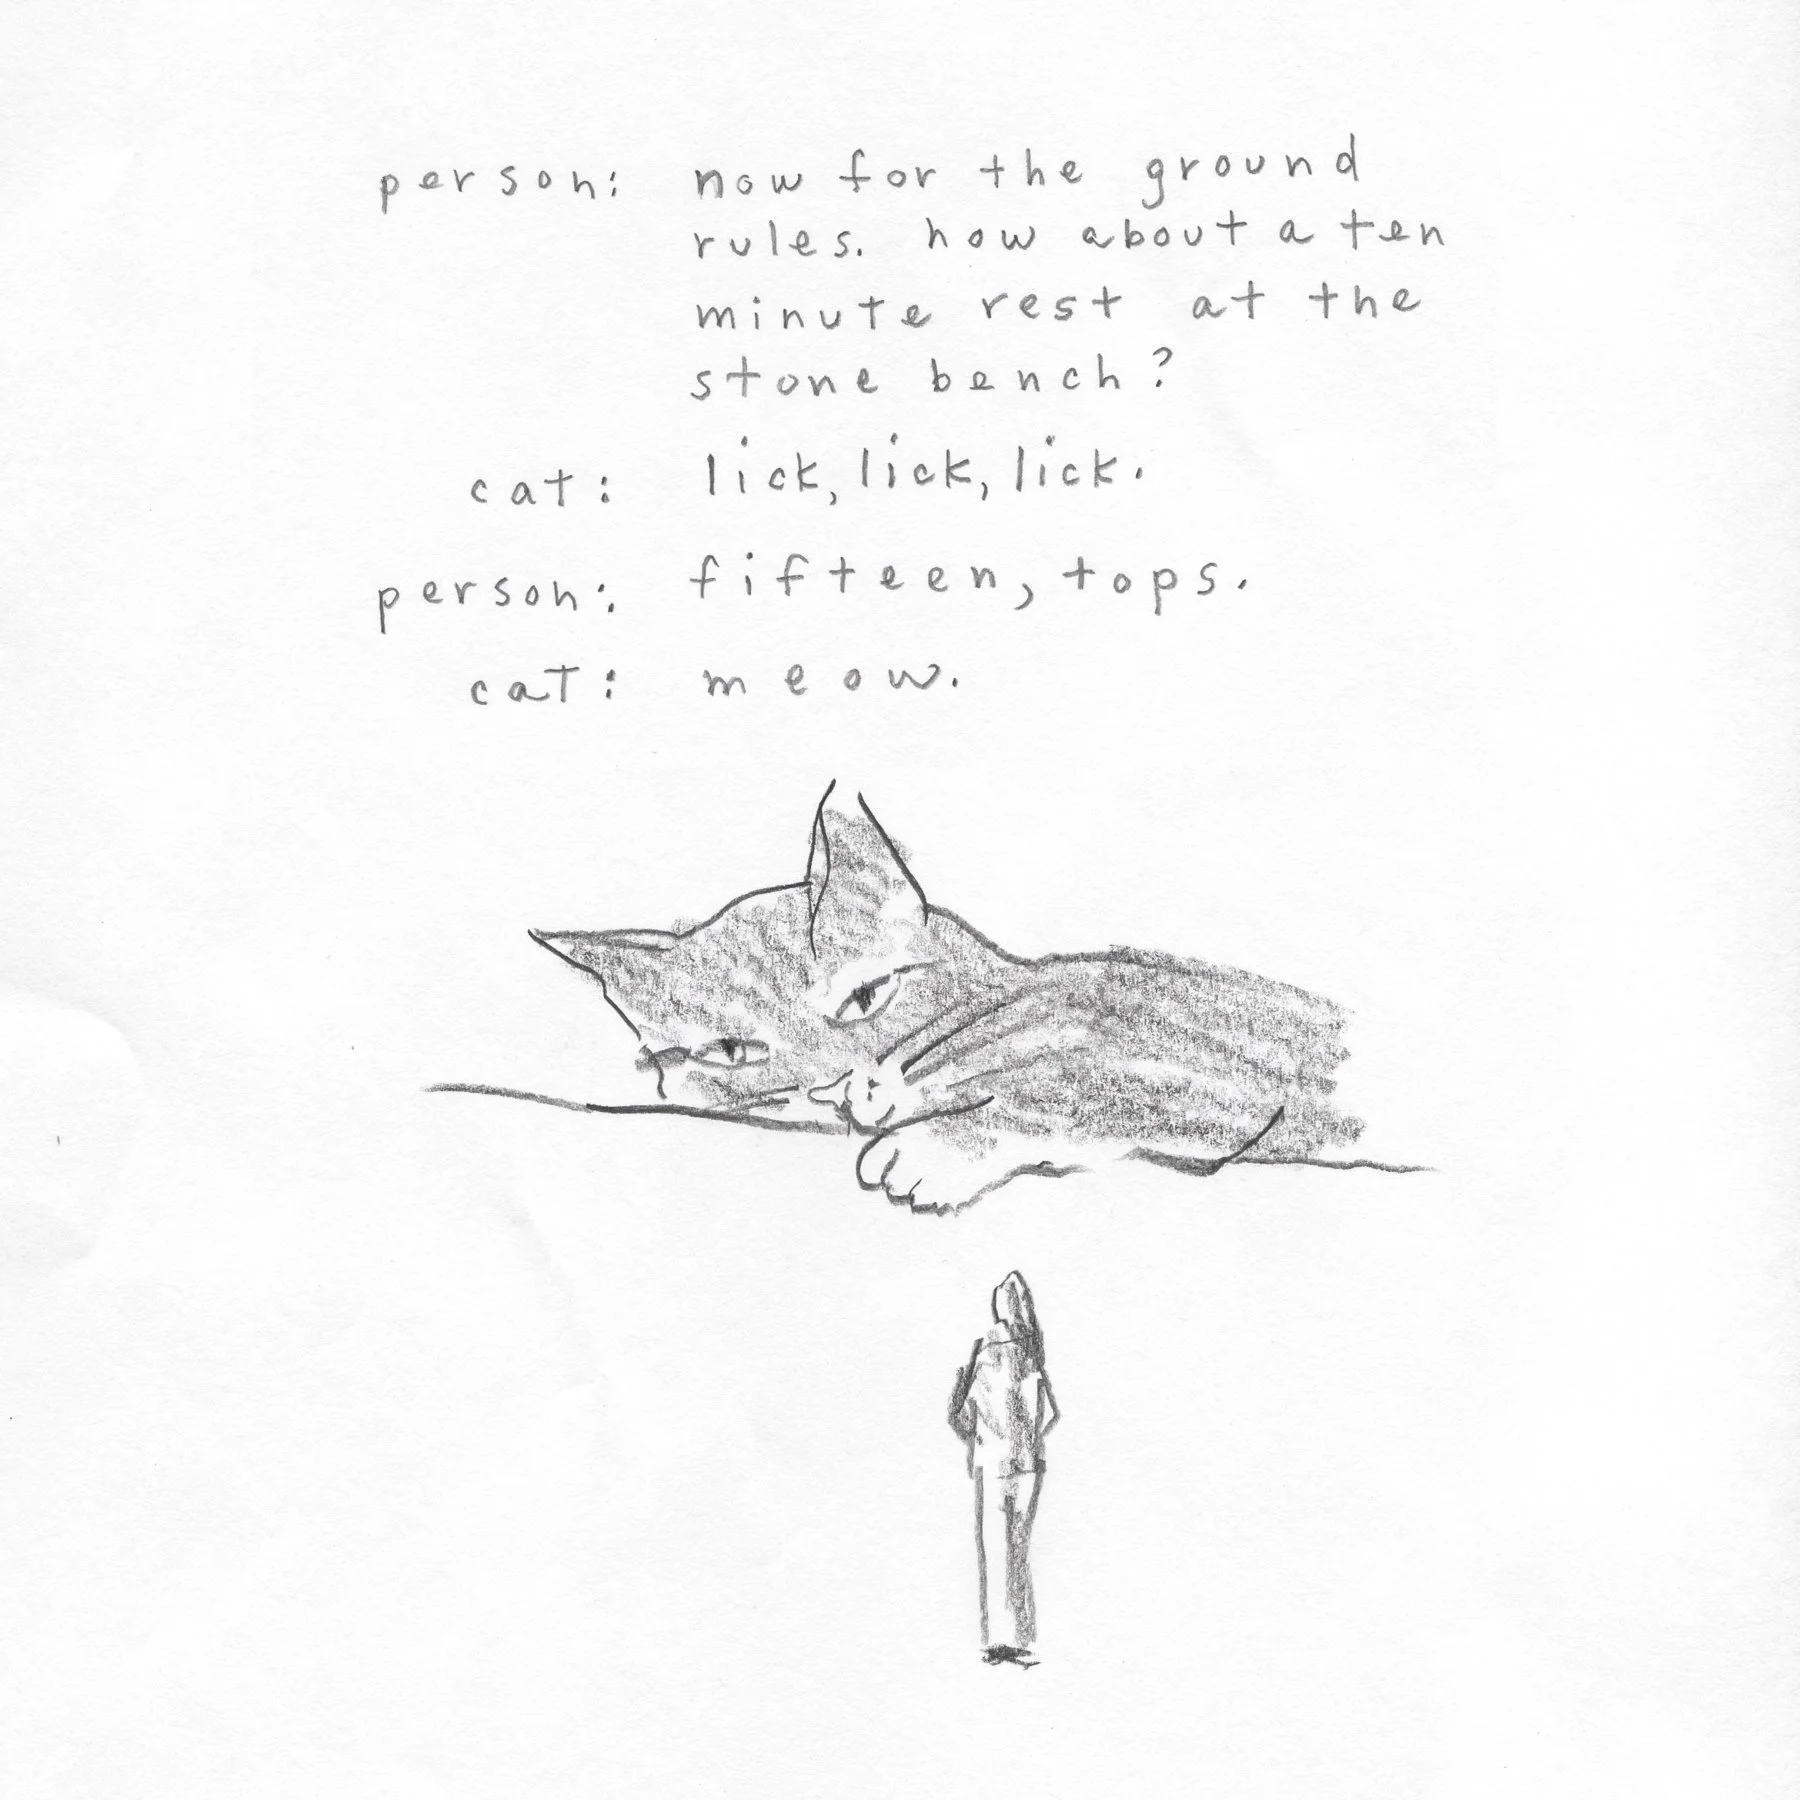 person: now for the ground
rules. how about a ten
minute rest at the
stone bench?
cat: lick, lick, lick.
person: fifteen, tops.
cat: meow.